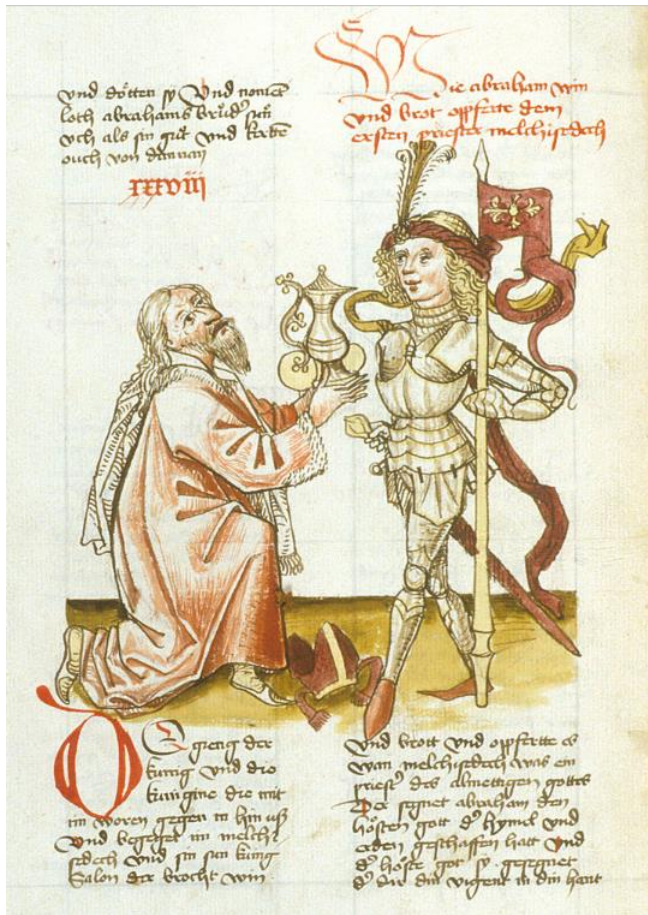 vnd dötten sy Vnd nomen
loth abrahams brůders sun
vch als sin gůt vnd
ouch von dannan
xxxviii
Wie abraham win
vnd brot opfferte dem
ersten priester melchisedech
DO gieng der
kúnig vnd die
kúnigine die mit
im woren gegen in hin uß
Vnd begegnet im melchi
sedech vnd sin sun kúng
Salon der brocht win
Vnd brott vnd opffertte es
wan melchisedech was ein
priester des almettigen gottes
Der segnet abraham den
hösten gott der hymel vnd
erden geschaffen hatt Vnd
der höste got sy gesegnet
der dir din vigent in din hant